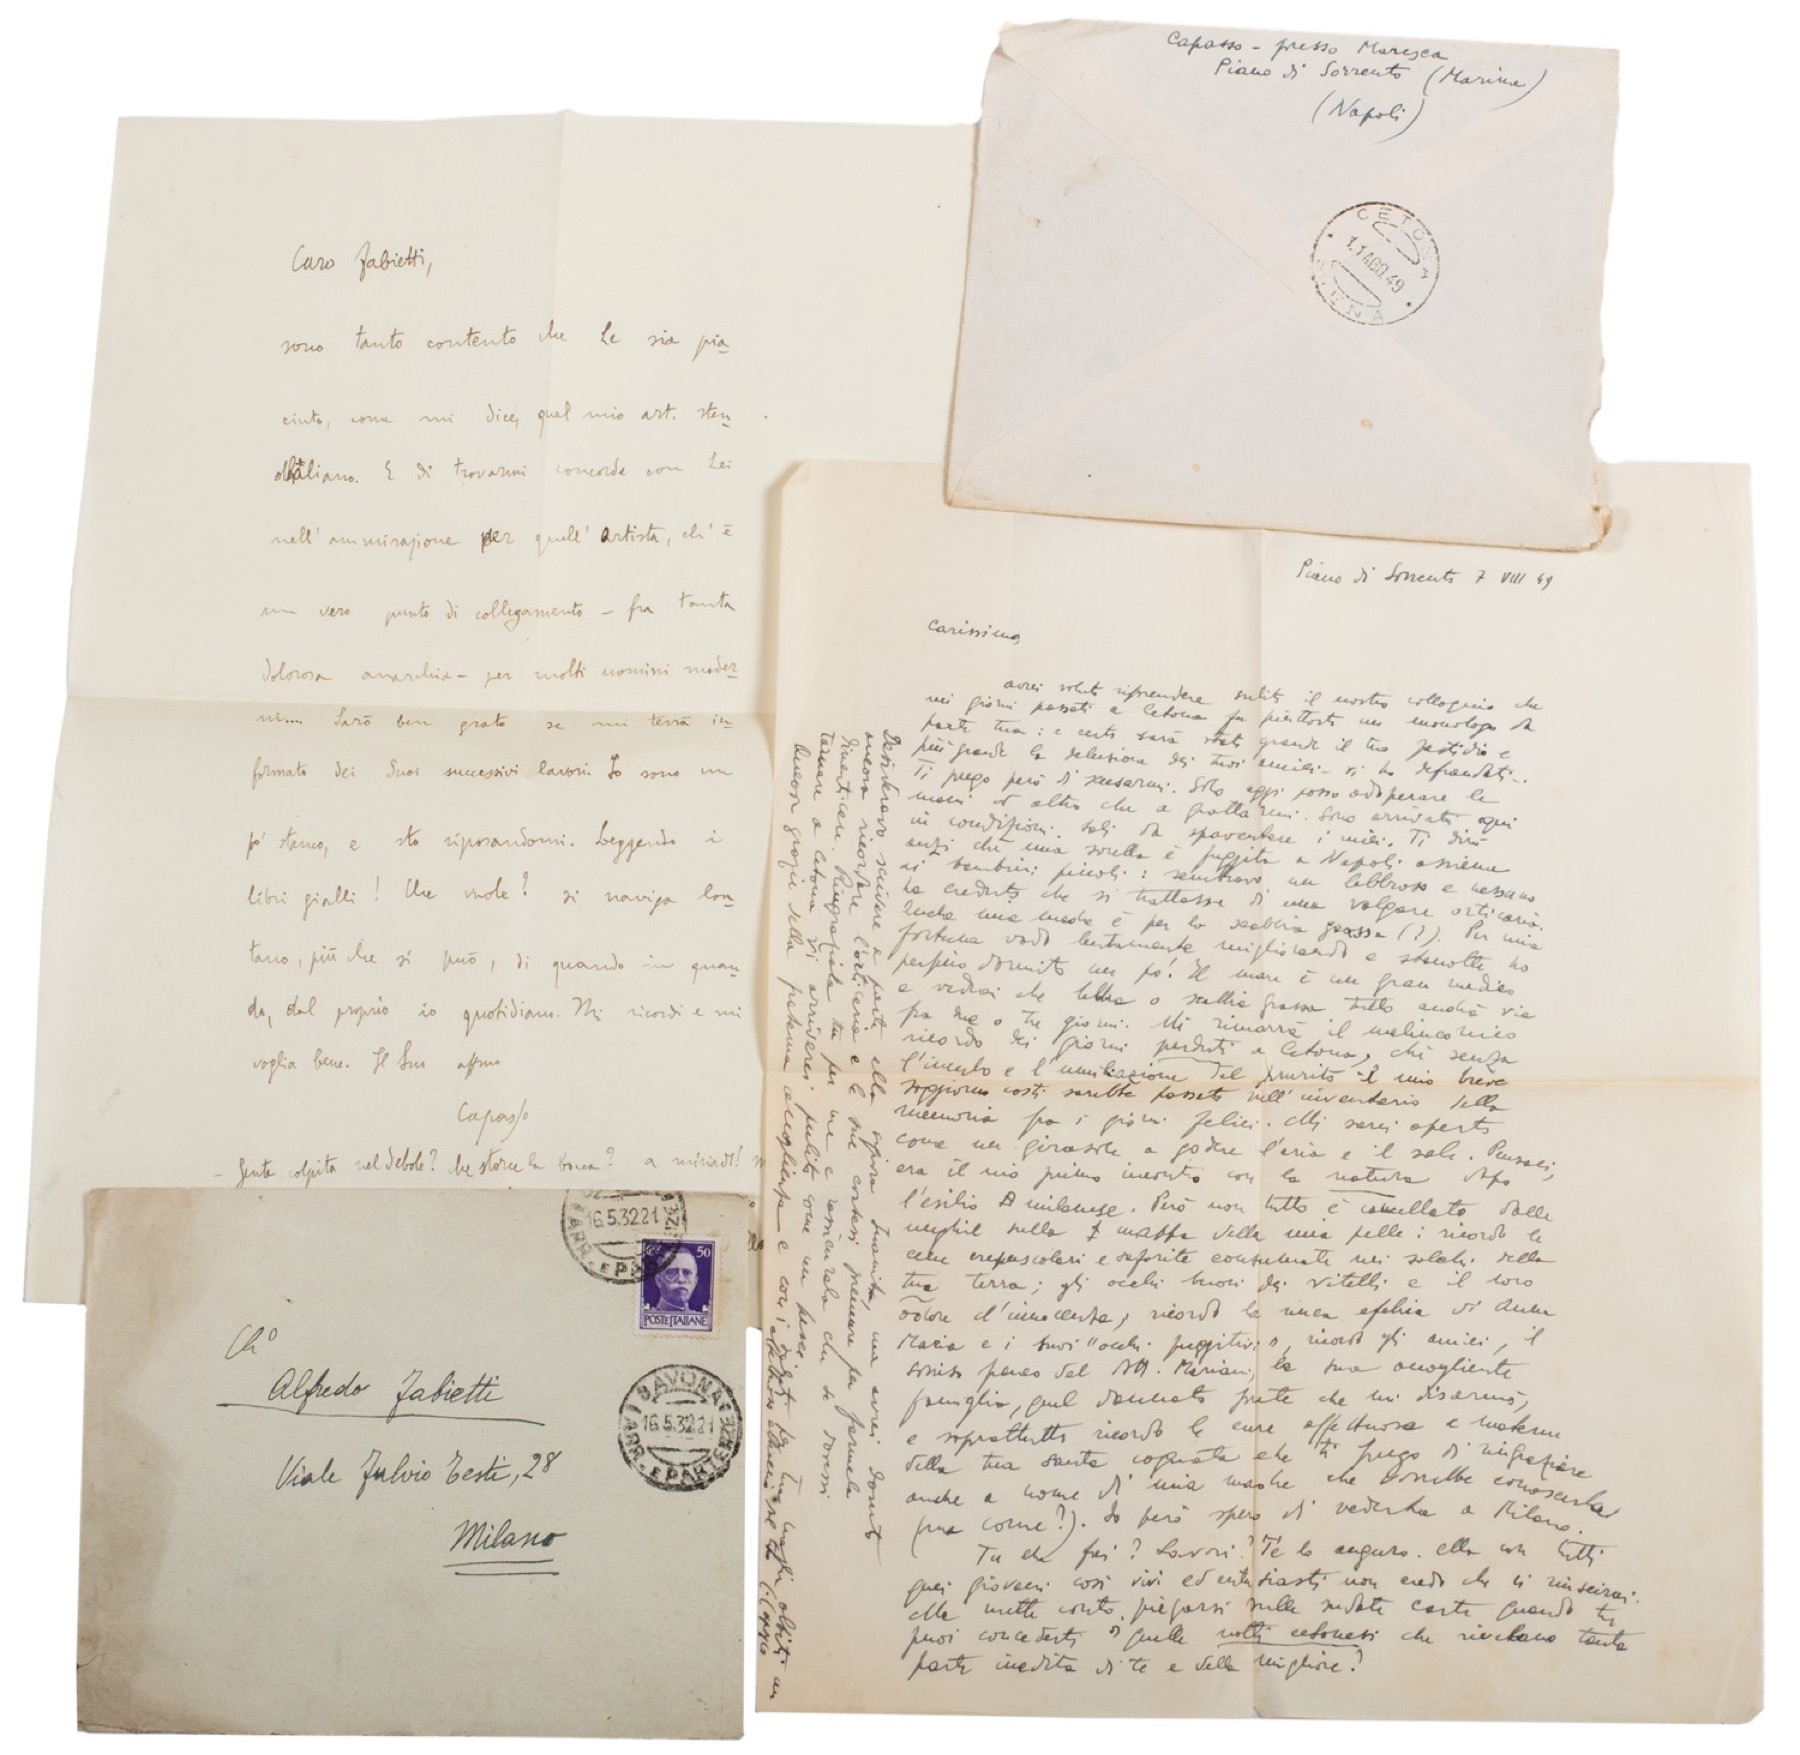 Caro Fabietti,
sono tanto contento che Le sia pia-
ciuto, come mi dice, quel mio art. sten-
dhaliano. E di trovarmi concorde con Lei
nell'ammirazione per quell'artista, ch'è
un vero punto di collegamento – fra tanta
dolorosa anarchia – per molti uomini moder-
ni.... Sarò ben grato se mi terrà in-
formato dei Suoi successivi lavori. Io sono un
pò stanco, e sto riposandomi. Leggendo i
libri gialli! Che vuole? si naviga lon-
tano, più che si può, di quando in quan-
do, dal proprio io quotidiano. Mi ricordi e mi
voglia bene. Il Suo affmo
Capasso
- Gente colpita nel debole? che storce la bocca?
Capasso – presso Maresca
Piano di Sorrento (Marina)
(Napoli)
CETONA
11 AGO 49
SIENA
Piano di Sorrento 7 VIII 49
Carissimo,
avrei voluto riprendere subito il nostro colloquio che
nei giorni passati a Cetona fu piuttosto un monologo da
parte tua: e certo sarà stato grande il tuo fastidio e
più grande la delusione dei tuoi amici – vi ho defraudati –.
Ti prego però di scusarmi. Solo oggi posso adoperare le
mani ad altro che a grattarmi. Sono arrivato ogni
in condizioni tali da spaventare i miei. Ti dirò
anzi che una sorella è fuggita a Napoli assieme
ai bambini piccoli: sembravo un lebbroso e nessuno
ha creduto che si trattasse di una volgare orticaria.
Anche mia madre è per la scabbia grassa (?). Per mia
fortuna vado lentamente migliorando e stanotte ho
perfino dormito un po'. Il mare è un gran medico
e vedrai che lebbra o scabbia grassa tutto andrà via
fra due o tre giorni. Mi rimarrà il malinconico
ricordo dei giorni perduti a Cetona, chè senza
l'incubo e l'umiliazione del prurito il mio breve
soggiorno costì sarebbe passato nell'inventario della
memoria fra i giorni felici. Mi sarei aperto
come un girasole a godere l'aria e il sole. Pensaci,
era il mio primo incontro con la natura dopo
l'esilio milanese. Però non tutto è cancellato dalle
unghie sulla mappa della mia pelle: ricordo le
cene crepuscolari e saporite consumate nei della
tua terra; gli occhi buoni dei vitelli e il loro
odore d'innocenza; ricordo la di Anna
Maria e i suoi "occhi fuggitivi", ricordo gli amici, il
sorriso del Dott. Mariani, la sua accogliente
famiglia, quel dannato prete che mi disarmò,
e soprattutto ricordo le cure affettuose e materne
della tua santa cognata che ti prego di ringraziare
anche a nome di mia madre che vorrebbe conoscerla
(ma come?). Io però spero di vederla a Milano.
Tu che fai? Lavori? Te lo auguro. Ma con tutti
quei giovani così vivi ed entusiasti non credo che ci riuscirai.
Ma mette conto piegarsi sulle sudate carte quando tu
puoi concederti quelle notti cetonesi che rivelano tanta
parte inedita di te e della migliore?
Desideravo scrivere a parte alla signora, ma avrei dovuto
ancora ricordare l'orticaria e le sue cortesi premure per farmela
dimenticare. Ringraziala tu per me e rassicurala che se dovessi
tornare a Cetona vi arriverei pulito come un pesce.
Ancora grazie della paterna accoglienza e
Ch°
Alfredo Fabietti
Viale Fulvio Testi, 28
Milano
16.5.32 21
50
POSTE ITALIANE
SAVONA
16.5.32 21
ARR. E PARTENZE